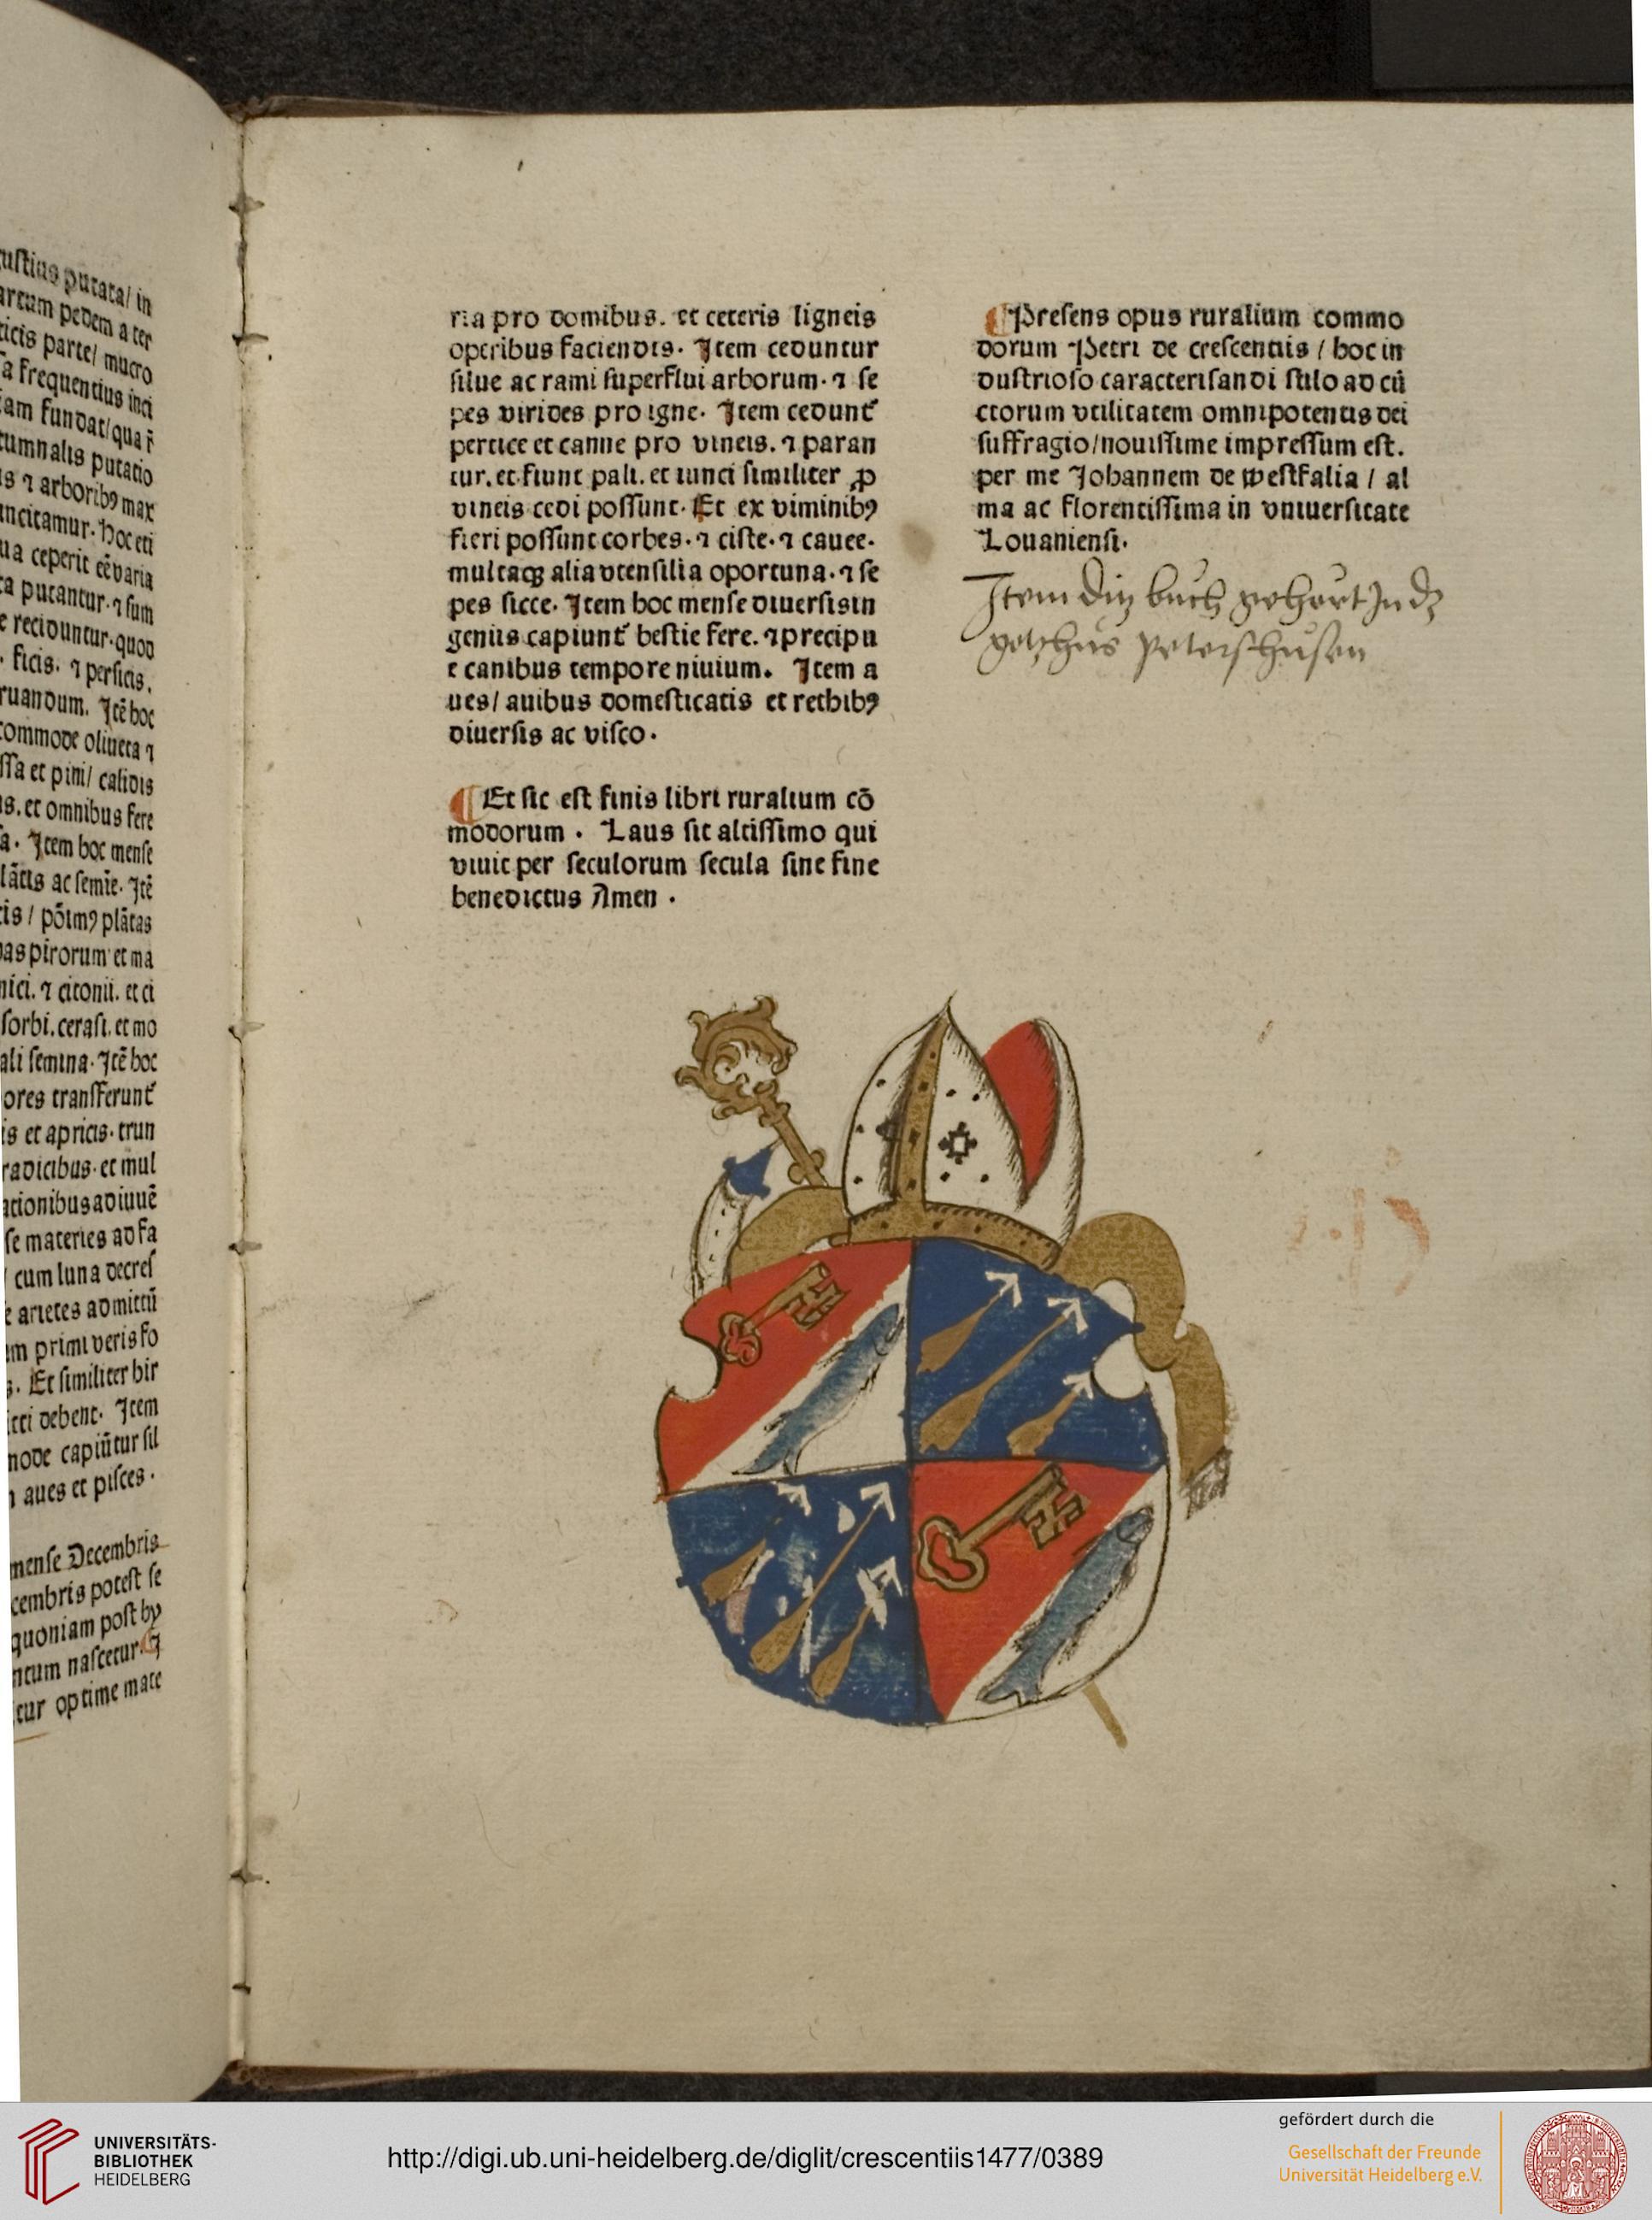 uſtius putata/ in
artum pedem a ter
ticis parte/ mucro
ſa frequentius inci
iam fundat/qua r̄
tumnalis putatio
is ⁊ arboribꝰ max
incitamur. Hoc eti
ua ceperit eē varia
ta putantur. ⁊ ſum
e reciduntur. quod
. ficis. ⁊ perſicis.
ruandum. Itē hoc
commode oliueta ⁊
ſſa et pini/ calidis
is. et omnibus fere
a. Item hoc menſe
lātis ac ſemīe. Itē
tis / pōimꝰ plātas
as pirorum et ma
nici. ⁊ citonii. et ci
ſorbi. ceraſi. et mo
ali ſemina. Itē hoc
ores tranſferunt᷑
is et apricis. trun
radicibus. et mul
ationibus adiuuē
ſe materies ad fa
/ cum luna decreſ
e arietes admittū
im primi veris fo
. Et ſimiliter hir
icti debent. Item
mode capiūtur ſil
aues et piſces.
menſe Decembris
cembris poteſt ſe
quoniam poſt hy
ntum naſcetur. ⁊
tur optime mate
ria pro domibus. et ceteris ligneis
operibus faciendis. Item ceduntur
ſilue ac rami ſuperflui arborum. ⁊ ſe
pes virides pro igne. Item cedunt᷑
pertice et canne pro vineis. ⁊ paran
tur. et fiunt pali. et iunci ſimiliter ꝓ
vineis cedi poſſunt. Et ex viminibꝰ
fieri poſſunt corbes. ⁊ ciſte. ⁊ cauee.
multaqꝫ alia vtenſilia oportuna. ⁊ ſe
pes ſicce. Item hoc menſe diuerſis in
geniis capiunt᷑ beſtie fere. ⁊ precipu
e canibus tempore niuium. Item a
ues/ auibus domeſticatis et rethibꝰ
diuerſis ac viſco.
¶ Et ſic eſt finis libri ruralium cō
modorum. Laus ſit altiſſimo qui
viuit per ſeculorum ſecula ſine fine
benedictus Amen.
¶ Preſens opus ruralium commo
dorum Petri de creſcentiis / hoc in
duſtrioſo caracteriſandi ſtilo ad cū
ctorum vtilitatem omnipotentis dei
ſuffragio/nouiſſime impreſſum eſt.
per me Johannem de weſtfalia / al
ma ac florentiſſima in vniuerſitate
Louanienſi.
Item diz buͦch gehoͤrt In dz
gotzhus peterſhuſen
UNIVERSITÄTS-
BIBLIOTHEK
HEIDELBERG
http://digi.ub.uni-heidelberg.de/diglit/crescentiis1477/0389
gefördert durch die
Gesellschaft der Freunde
Universität Heidelberg e.V.